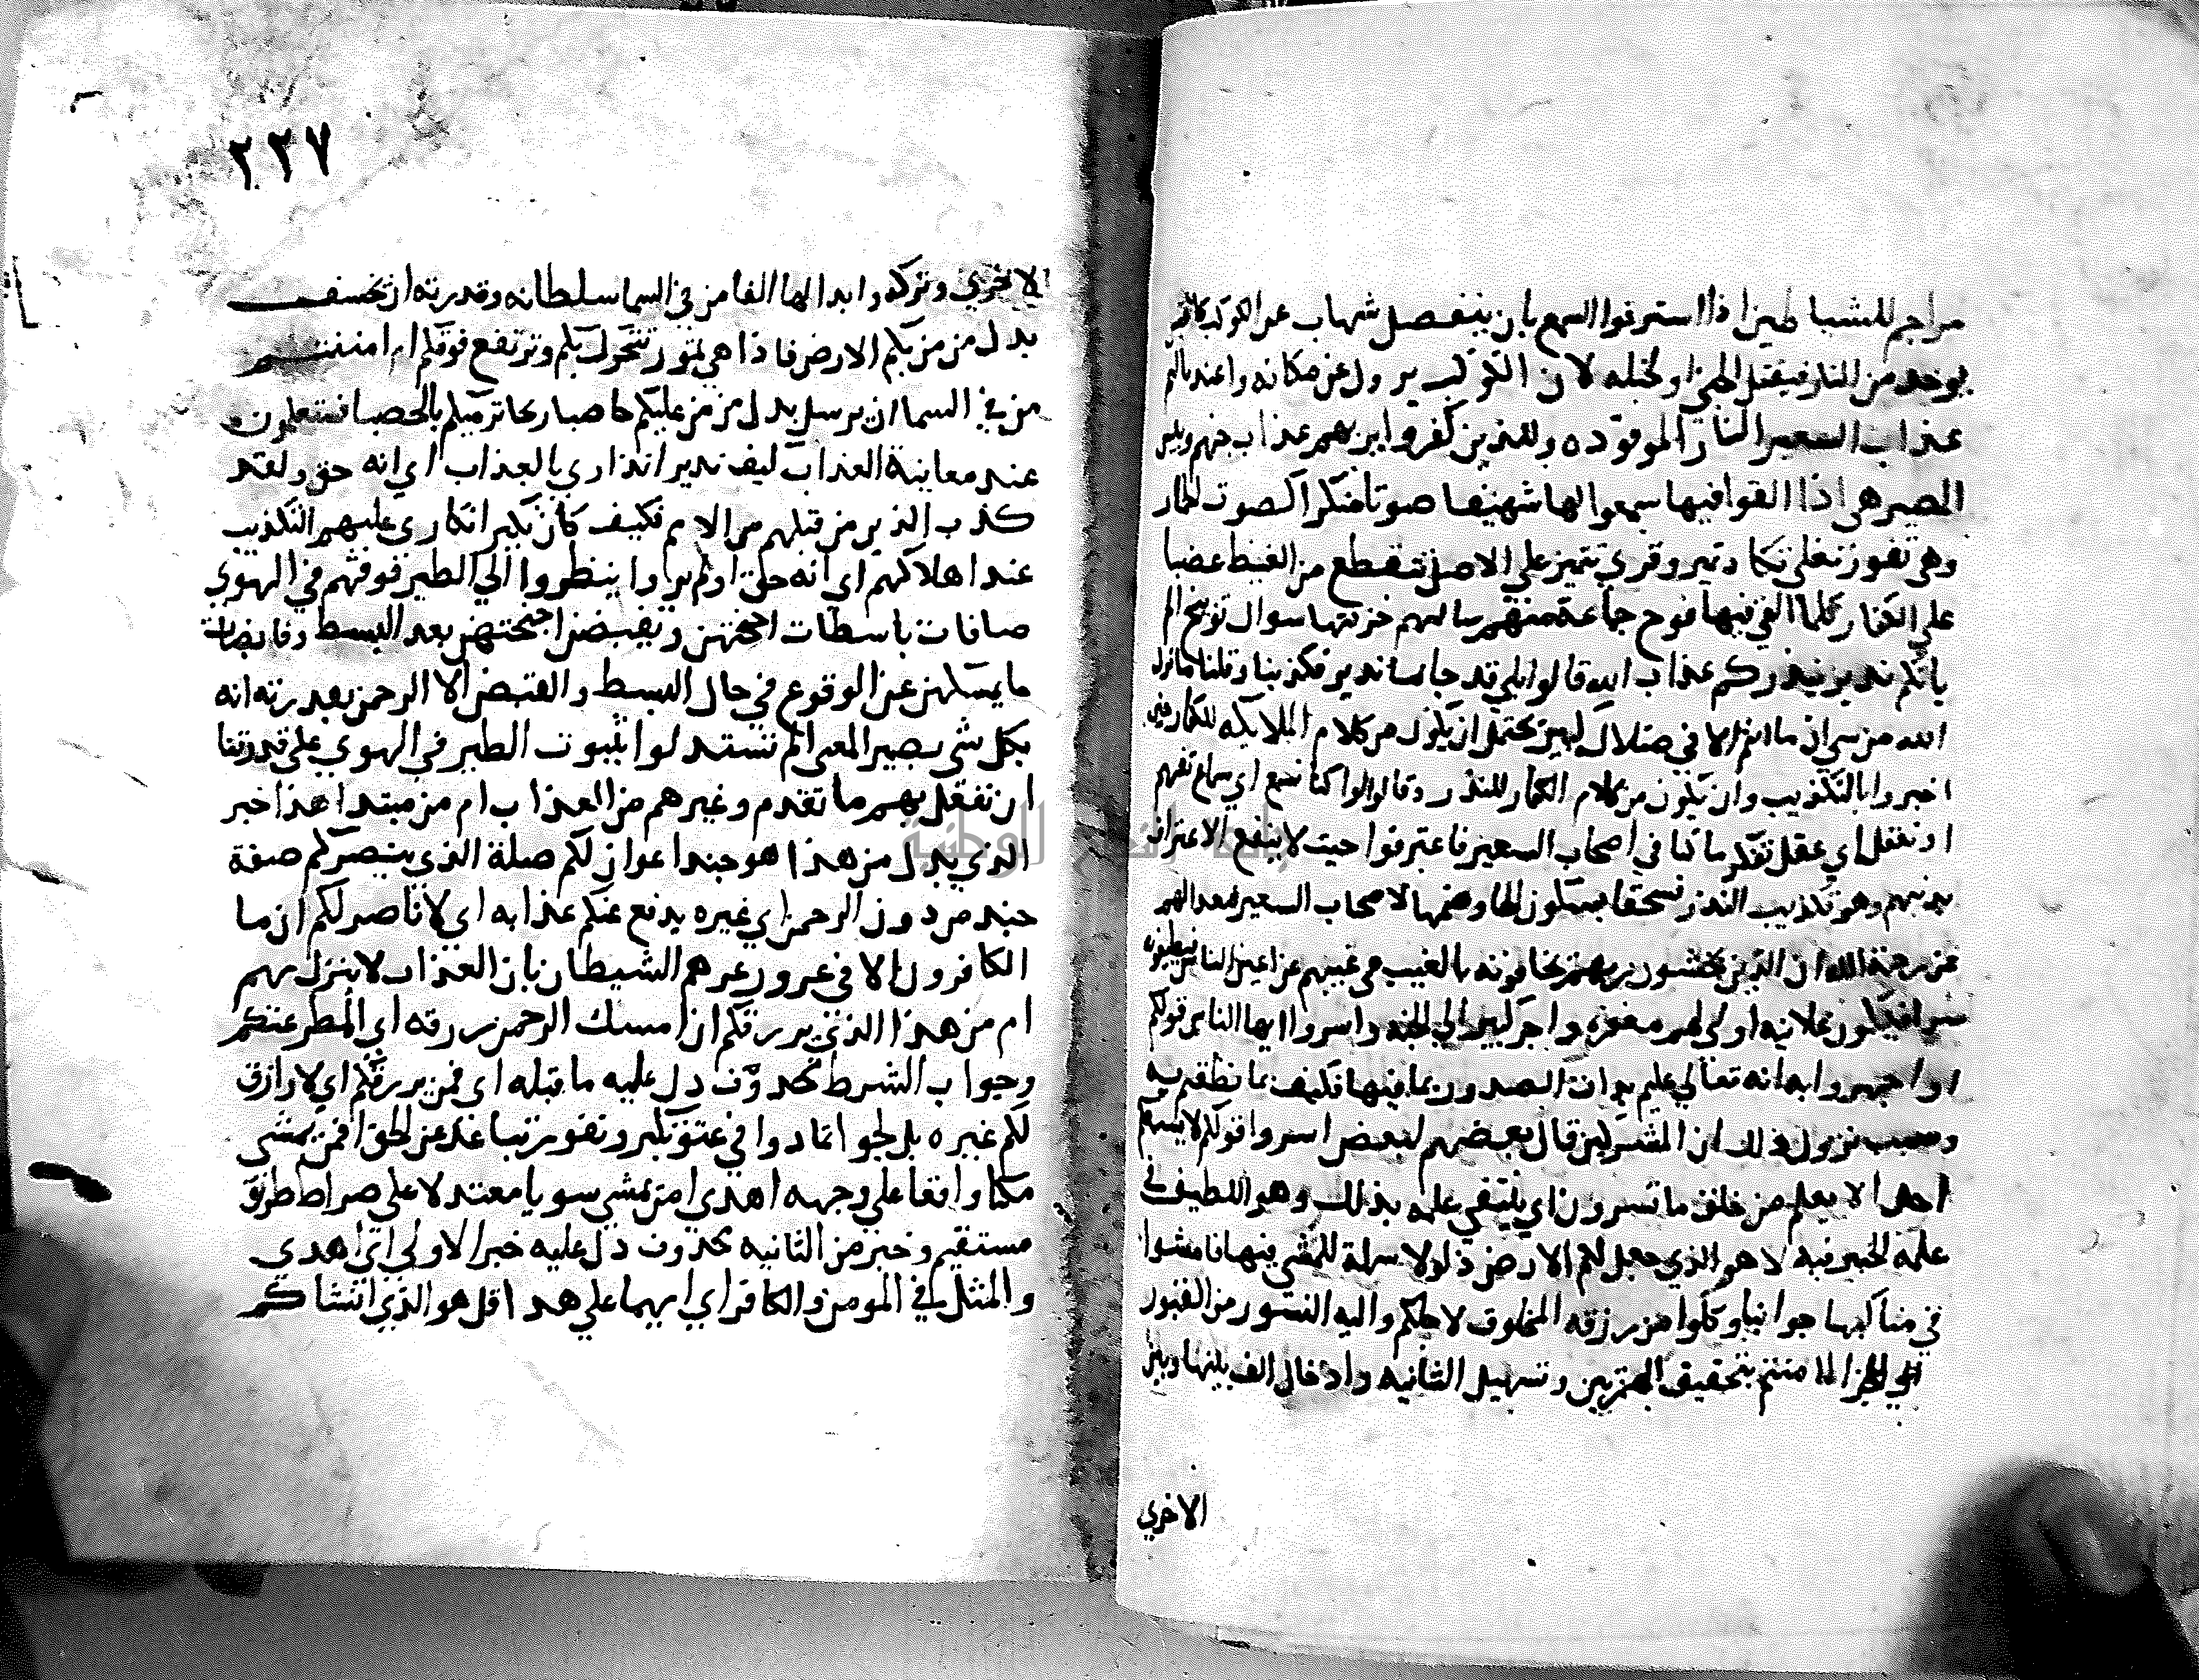 مراجم للشياطين اذا استرقوا السمع بان ينفصل شهاب عن الكوكب كالقبس
يوخد من النار فيقتل الجني او يخبله لان الكوكب يزول عن مكانه واعتدنا لهم
عذاب السعير النار الموقوده وللذين كفروا بربهم عذاب جهنم وبيس
المصير هي اذا القوا فيها سمعوا لها شهيقا صوتا منكرا كصوت الحمار
وهي تفور تغلي تكاد تميز وقري تتميز علي الاصل تتقطع من الغيظ غضبا
علي الكفار كلما القي فيها فوج جماعة منهم سالهم خزنتها سوال توبيخ الم
ياتكم نذير ينذركم عذاب الله قالوا بلي قد جانا نذير فكذبنا وقلنا ما نزل
الله من شي ان ما انتم الا في ضلال كبير يحتمل ان يكون من كلام الملايكه للكفار حين
اخبروا بالتكذيب وان يكون من كلام الكفار للنذر وقالوا لوا كنا نسمع اي سماع تفهم
او نعقل اي عقل تفكر ما كنا في اصحاب السعير فاعترفوا حيت لا ينفع الاعتراف
بذنبهم وهو تكذيب النذر فسحقا بسكون الحا وضمها لاصحاب السعير فبعدا لهم
عن رحمة الله ان الذين يخشون ربهم يخافونه بالغيب في غيبتهم عن اعين الناس فيطيعونه
سرا فيكون علانيه اولي لهم مغفره واجر كبير اي الجنه واسروا ايها الناس قولكم
او اجهروا به انه تعالي عليم بدات الصدور بما فيها فكيف بما نطقتم به
وسبب نزول ذلك ان المشركين قال بعضهم لبعض اسروا قولكم لا يسمعكم
احدا الا يعلم من خلق ما تسرون اي ينتفي علمه بذلك وهو اللطيف في
علمه الخبير فيه لا هو الذي جعل لكم الارض ذلولا سهلة للمشي فيها فامشوا
في مناكبها جوانبها وكلوا من رزقه المخلوق لاجلكم واليه النشور من القبور
للجزا اامنتم بتحقيق الهمزتين وتسهيل الثانيه وادخال الف بينها وبين
الاخري
٢٣٧
الاخري وتركه وابدالها الفا من في السما سلطانه وقدرته ان يخسف
بدل من من بكم الارض فاذا هي تمور تتحرك بكم وترتفع فوقكم ام امنتم
من في السما ان يرسل بدل من من عليكم حاصبا ريحا ترميكم بالحصبا فستعلمون
عند معاينة العذاب كيف ندير انذاري بالعذاب اي انه حق ولقد
كذب الذين من قبلهم من الامم فكيف كان نكير انكاري عليهم التكذيب
عند اهلاكهم اي انه حق اولم يروا ينظروا الي الطير فوقهم في الهوي
صافات باسطات اجنحتهن ويقبضن اجنحتهن بعد البسط وقابضات
ما يمسكهن عن الوقوع في حال البسط والقبض الا الرحمن بقدرته انه
بكل شي بصير المعني الم تستدلوا بثبوت الطير في الهوي علي قدرتنا
ان نفعل بهم ما تقدم وغيرهم من العذاب ام من مبتدا هذا خبر
الذي بدل من هذا هو جند اعوان لكم صلة الذي ينصركم صفة
جند من دون الرحمن اي غيره يدفع عنكم عذابه اي لا ناصر لكم ان ما
الكافرون الا في غرور غرهم الشيطان بان العذاب لا ينزل بهم
ام من هذا الذي يرزقكم ان امسك الرحمن رزقه اي المطر عنكم
وجواب الشرط محدوف دل عليه ما قبله اي فمن يرزقكم اي لا رازق
لكم غيره بل لجوا تمادوا في عتو تكبر ونفور تباعد عن الحق افمن يمشي
مكبا واقعا علي وجهه اهدي امن يمشي سويا معتدلا علي صراط طريق
مستقيم وخبر من الثانيه محدوف دل عليه خبر الاولي اي اهدي
والمثل في المومن والكافر اي ايهما علي هدا قل هو الذي انشاكم